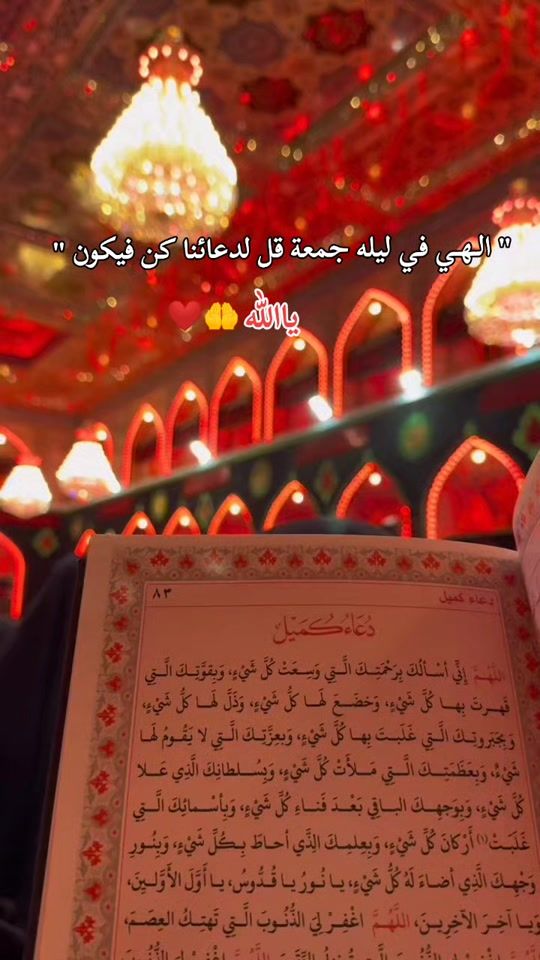 " الهي في ليله جمعة قل لدعائنا كن فيكون "
ياالله 🤲♥️
دعاء كميل ٨٣
دُعَاءُ كُمَيْل
اللّهُمَّ إِنِّي أَسْأَلُكَ بِرَحْمَتِكَ الَّتِي وَسِعَتْ كُلَّ شَيْءٍ، وَبِقُوَّتِكَ الَّتِي
قَهَرْتَ بِها كُلَّ شَيْءٍ، وَخَضَعَ لَها كُلُّ شَيْءٍ، وَذَلَّ لَها كُلُّ شَيْءٍ،
وَبِجَبَرُوتِكَ الَّتِي غَلَبْتَ بِها كُلَّ شَيْءٍ، وَبِعِزَّتِكَ الَّتِي لا يَقُومُ لَها
شَيْءٌ، وَبِعَظَمَتِكَ الَّتِي مَلأَتْ كُلَّ شَيْءٍ، وَبِسُلطانِكَ الَّذِي عَلا
كُلَّ شَيْءٍ، وَبِوَجهِكَ الباقِي بَعْدَ فَناءِ كُلِّ شَيْءٍ، وَبِأَسْمائِكَ الَّتِي
غَلَبَتْ(١) أَرْكانَ كُلِّ شَيْءٍ، وَبِعِلمِكَ الَّذِي أَحاطَ بِكُلِّ شَيْءٍ، وَبِنُورِ
وَجْهِكَ الَّذِي أَضاءَ لَهُ كُلُّ شَيْءٍ، يا نُورُ يا قُدُّوسُ، يا أَوَّلَ الأَوَّلِينَ،
وَيا آخِرَ الآخِرِينَ، اللّهُمَّ اغْفِرْ لِيَ الذُّنُوبَ الَّتِي تَهتِكُ العِصَمَ،